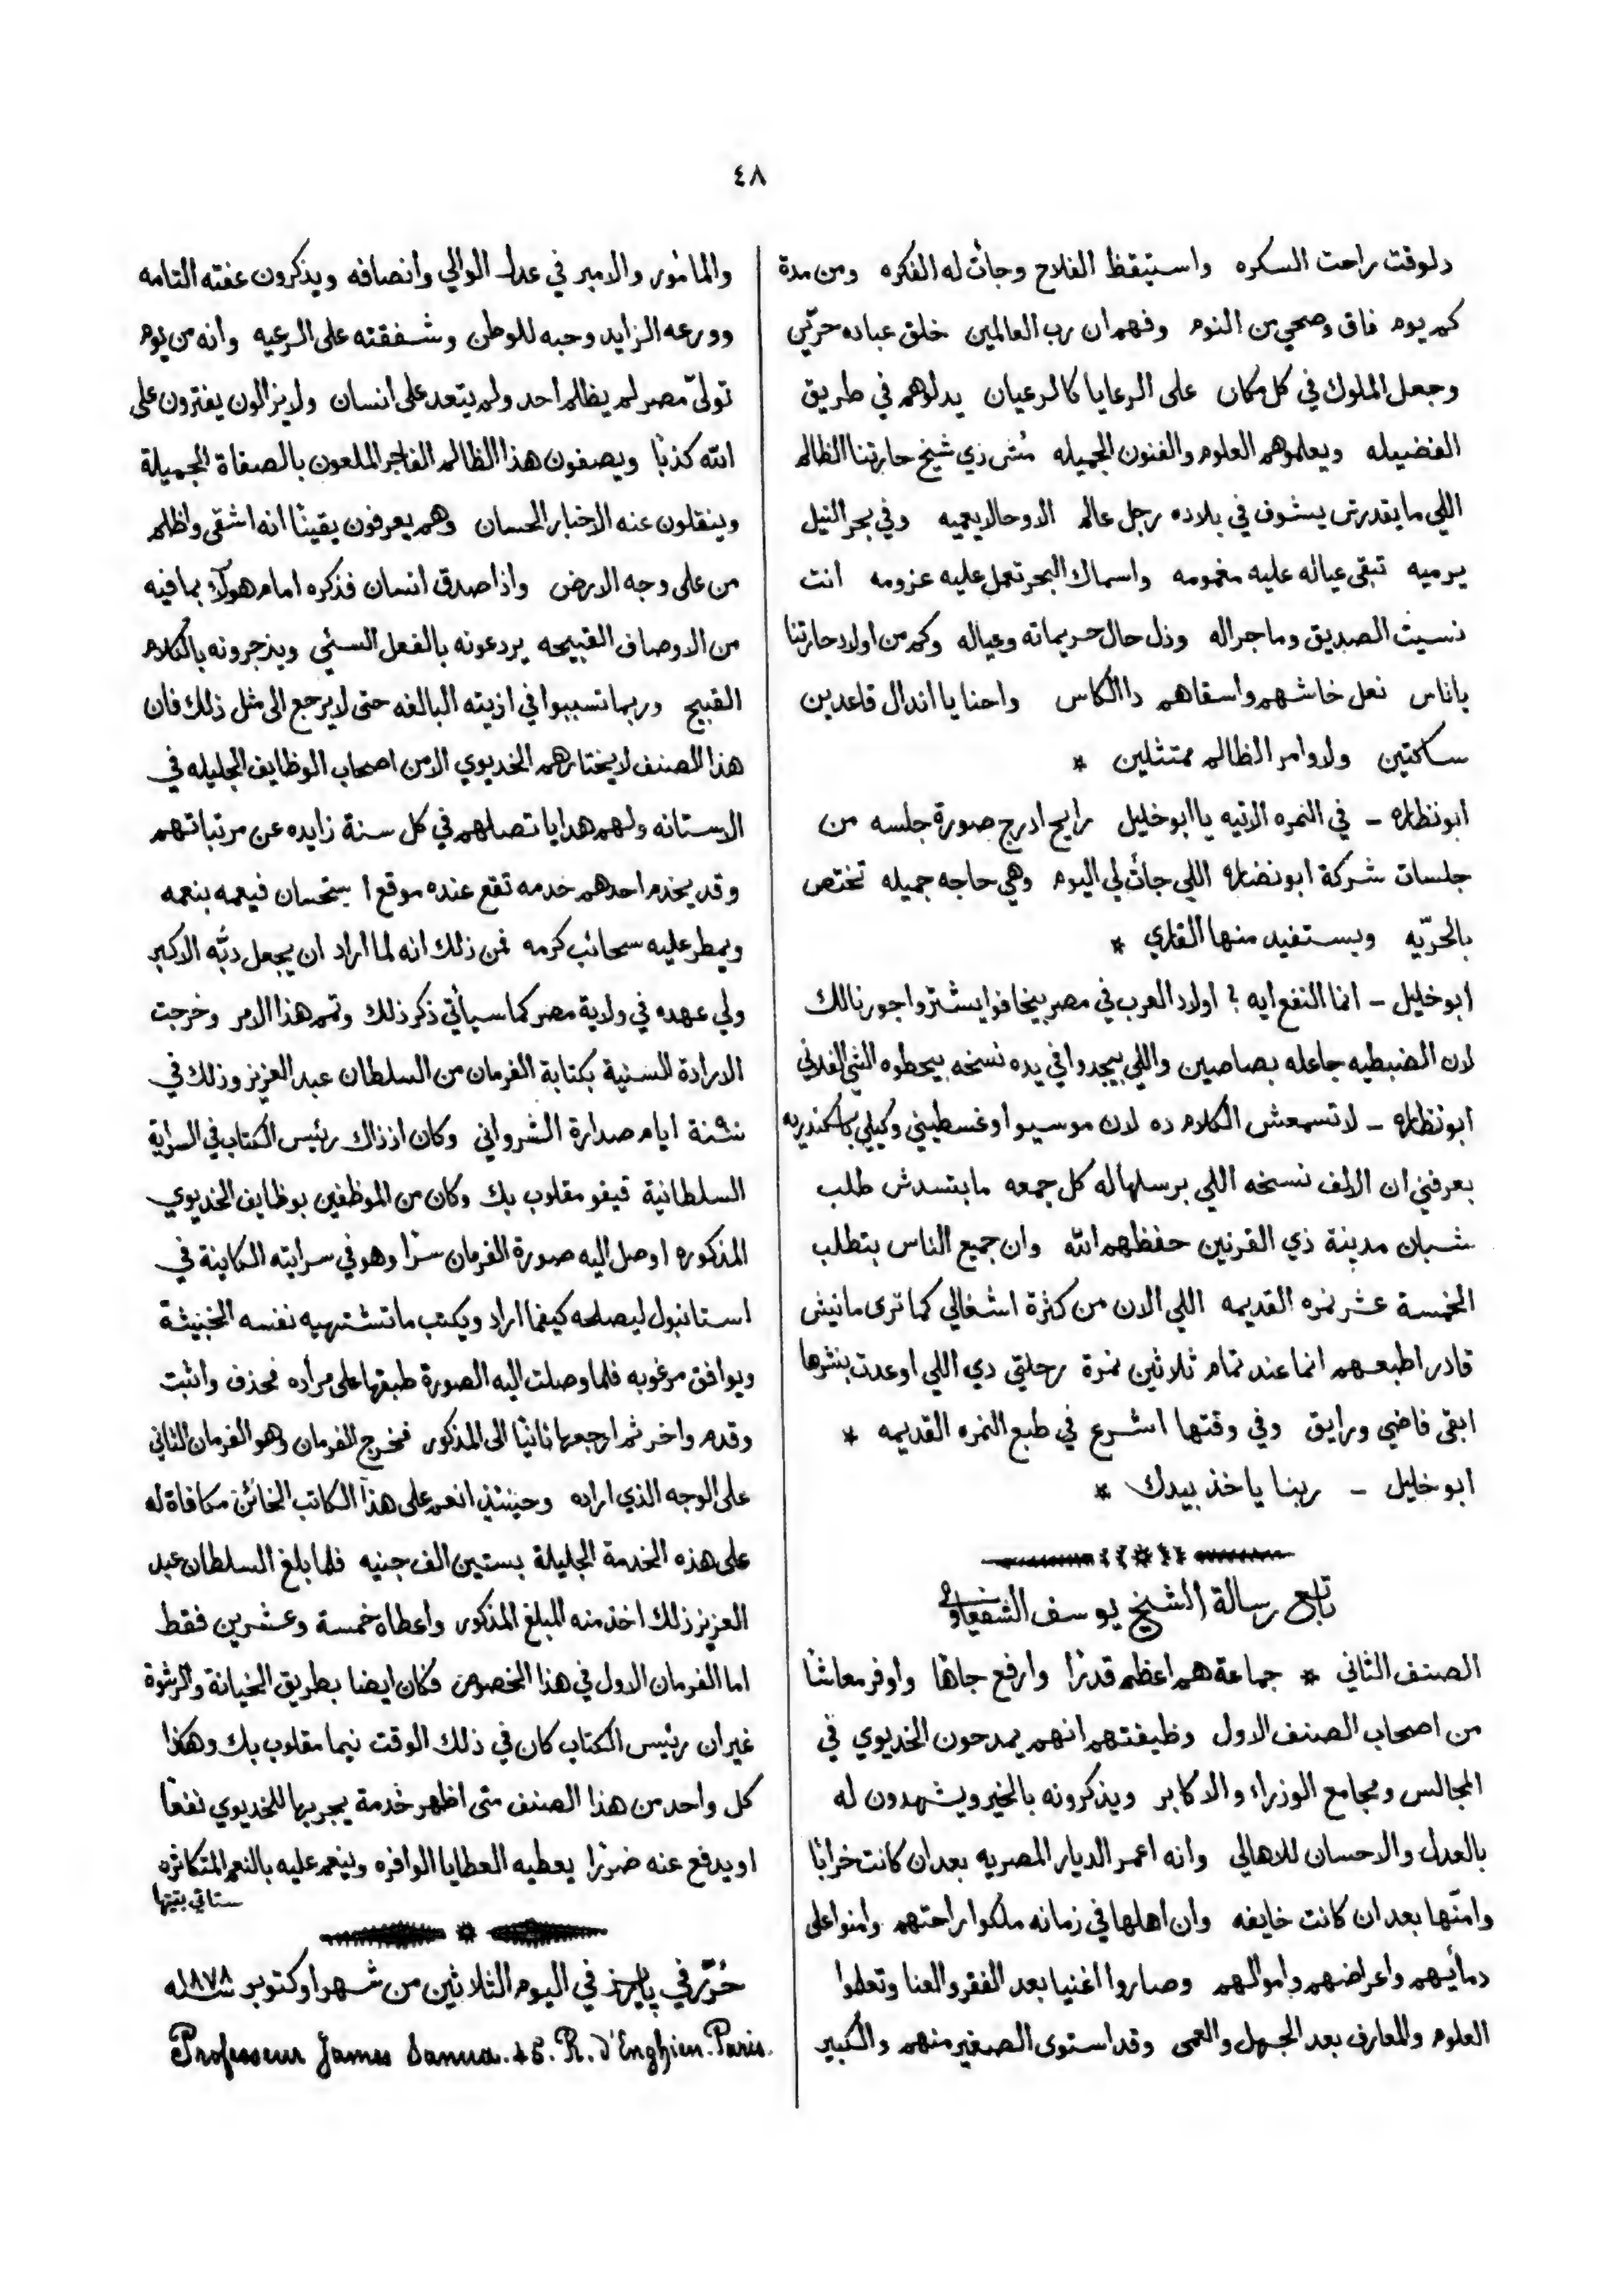 ٤٨
دلوقت راحت السكره واستيقظ الفلاح وجأت له الفكره ومن مدة
كم يوم فاق وصحي من النوم وفهم ان رب العالمين خلق عباده حرّين
وجعل الملوك في كل مكان على الرعايا كالرعيان يدلوهم في طريق
الفضيله ويعلموهم العلوم والفنون الجميله مُش زي شيخ حارتنا الظالم
اللي ما يقدرش يشوف في بلاده رجل عالم الا وحالا يعميه وفي بحر النيل
يرميه تبقى عياله عليه مغمومه واسماك البحر تعمل عليه عزومه انت
نسيت الصديق وما جراله وذل حال حريماته وعياله وكم من اولاد حارتنا
ياناس نعل خاشهم واسقاهم دا الكاس واحنا يا اندال قاعدين
ساكتين ولاوامر الظالم ممتثلين *
ابونظاره – في النمره الاتيه يا ابوخليل رايح ادرج صورة جلسه من
جلسات شركة ابونضاره اللي جأت لي اليوم وهي حاجه جميله تختص
بالحرّيه ويستفيد منها القاري *
ابوخليل – انما النفع ايه ؟ اولاد العرب في مصر بيخافوا يشتروا جورنالك
لان الضبطيه جاعله بصاصين واللي بيجدوا في يده نسخه بيحطوه الشي الفلاني
ابونظاره – لا تسمعش الكلام ده لان موسيو اوغسطيني وكيلي بالاسكندريه
بعرفني ان الالف نسخه اللي برسلها له كل جمعه ما بتسدش طلب
شبان مدينة ذي القرنين حفظهم الله وان جميع الناس بتطلب
الخمسة عشر نمره القديمه اللي الان من كثرة اشغالي كما ترى مانيش
قادر اطبعهم انما عند تمام ثلاثين نمرة رحلتي دي اللي اوعدت بنشرها
ابقى فاضي ورايق وفي وقتها اشرع في طبع النمره القديمه *
ابوخليل – ربنا ياخذ بيدك *
تابع رسالة الشيخ يوسف الشفعاوي
الصنف الثاني * جماعة هم اعظم قدرًا وارفع جاهًا واوفر معاشًا
من اصحاب الصنف الاول وظيفتهم انهم يمدحون الخديوي في
المجالس ومجامع الوزراء والاكابر ويذكرونه بالخير ويشهدون له
بالعدل والاحسان للاهالي وانه اعمر الديار المصريه بعد ان كانت خرابًا
وامّنها بعد ان كانت خايفه وان اهلها في زمانه ملكوا راحتهم وامنوا على
دمأيهم واعراضهم واموالهم وصاروا اغنيا بعد الفقر والعنا وتعلموا
العلوم والمعارف بعد الجهل والعمى وقد استوى الصغير منهم والكبير
والمأمور والامير في عدل الوالي وانصافه ويذكرون عفته التامه
وورعه الزايد وحبه للوطن وشفقته على الرعيه وانه من يوم
تولىّ مصر لم يظلم احد ولم يتعد على انسان ولا يزالون يفترون على
الله كذبًا ويصفون هذا الظالم الفاجر الملعون بالصفاة الجميلة
وينقلون عنه الاخبار الحسان وهم يعرفون يقينًا انه اشقى واظلم
من على وجه الارض واذا صدق انسان فذكره امام هولآء بما فيه
من الاوصاف القبيحه يردعونه بالفعل السئي ويزجرونه بالكلام
القبيح وربما تسببوا في اذيته البالغه حتى لا يرجع الى مثل ذلك فان
هذا الصنف لا يختارهم الخديوي الا من اصحاب الوظايف الجليله في
الاستانه ولهم هدايا تصلهم في كل سنة زايده عن مرتباتهم
وقد يخدم احدهم خدمه تقع عنده موقع استحسان فيعمه بنعمه
ويمطر عليه سحائب كرمه فمن ذلك انه لما اراد ان يجعل دبّه الاكبر
ولي عهده في ولاية مصر كما سيأتي ذكر ذلك وتم هذا الامر وخرجت
الارادة السنية بكتابة الفرمان من السلطان عبد العزيز وذلك في
سنة ايام صدارة الشرواني وكان اذ ذاك رئيس الكتاب في السراية
السلطانية قيفو مقلوب بك وكان من الموظفين بوظايف الخديوي
المذكوره اوصل اليه صورة الفرمان سرًا وهو في سرايته الكاينة في
استانبول ليصلحه كيفما اراد ويكتب ما تشتهيه نفسه الخبيثة
ويوافق مرغوبه فلما وصلت اليه الصورة طبقها على مراده فحذف واثبت
وقدم واخر ثم ارجعها ثانيًا الى المذكور فخرج الفرمان وهو الفرمان الثاني
على الوجه الذي اراده وحينئذ انعم على هذا الكاتب الخائن مكافاة له
على هذه الخدمة الجليلة بستين الف جنيه فلما بلغ السلطان عبد
العزيز ذلك اخذ منه المبلغ المذكور واعطاه خمسة وعشرين فقط
اما الفرمان الاول في هذا الخصوص فكان ايضا بطريق الخيانة والرشوة
غير ان رئيس الكتاب كان في ذلك الوقت نيما مقلوب بك وهكذا
كل واحد من هذا الصنف متى اظهر خدمة يجر بها للخديوي نفعًا
او يدفع عنه ضررًا يعطيه العطايا الوافره وينعم عليه بالنعم المتكاثره
ستاتي بقيتها
حُرّر في پاريز في اليوم الثلاثين من شهر اوكتوبر سنة ١٨٧٨
Professeur James Sanua. 48. R. d'Enghien. Paris.